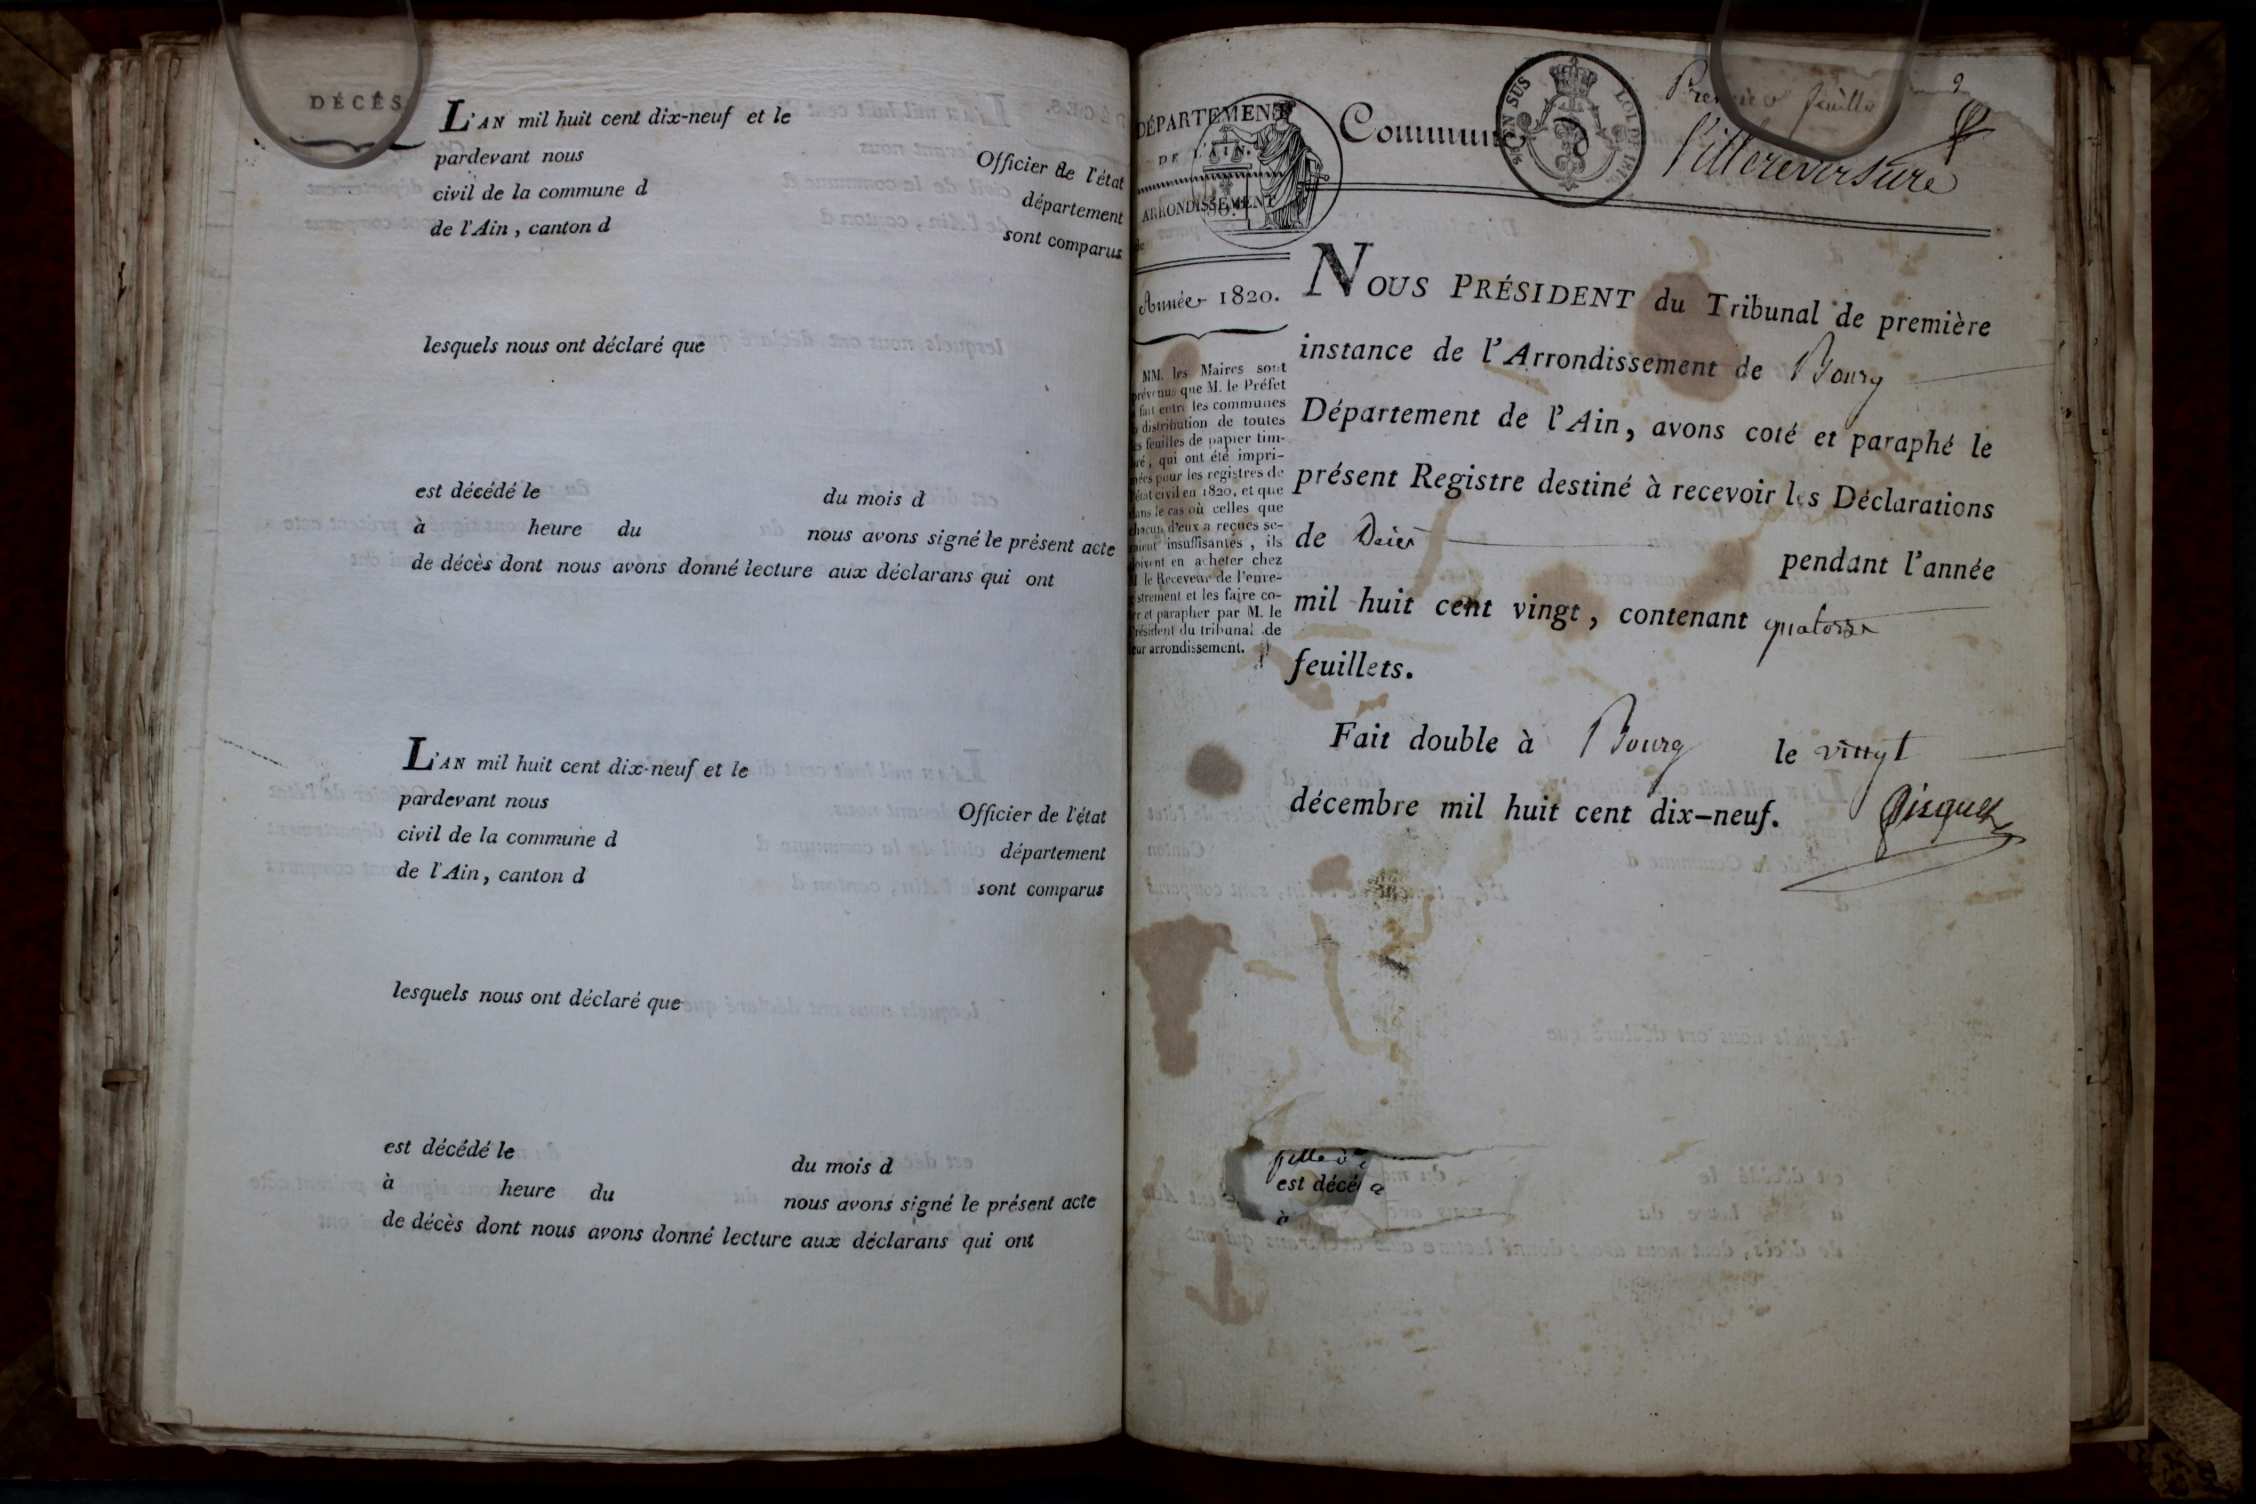 DÉCÈS
L'AN mil huit cent dix-neuf et le
pardevant nous Officier de l'état
civil de la commune d département
de l'Ain, canton d sont comparus
lesquels nous ont déclaré que
est décédé le du mois d
à heure du nous avons signé le présent acte
de décès dont nous avons donné lecture aux déclarans qui ont
L'AN mil huit cent dix-neuf et le
pardevant nous Officier de l'état
civil de la commune d département
de l'Ain, canton d sont comparus
lesquels nous ont déclaré que
est décédé le du mois d
à heure du nous avons signé le présent acte
de décès dont nous avons donné lecture aux déclarans qui ont
Premier feuille
DÉPARTEMENT
DE L'AIN.
ARRONDISSEMENT
de
Commune
SUS
LOI DE
Villereversure
Année 1820.
MM. les Maires sont
prévenus que M. le Préfet
a fait entre les communes
la distribution de toutes
les feuilles de papier tim-
bré, qui ont été impri-
mées pour les registres de
l'état civil en 1820, et que
dans le cas où celles que
chacun d'eux a reçues se-
raient insuffisantes, ils
doivent en acheter chez
le Receveur de l'enre-
gistrement et les faire co-
ter et parapher par M. le
Président du tribunal de
leur arrondissement.
NOUS PRÉSIDENT du Tribunal de première
instance de l'Arrondissement de Bourg
Département de l'Ain, avons coté et paraphé le
présent Registre destiné à recevoir les Déclarations
de Décès pendant l'année
mil huit cent vingt, contenant quatorze
feuillets.
Fait double à Bourg le vingt
décembre mil huit cent dix-neuf.
est décé
à